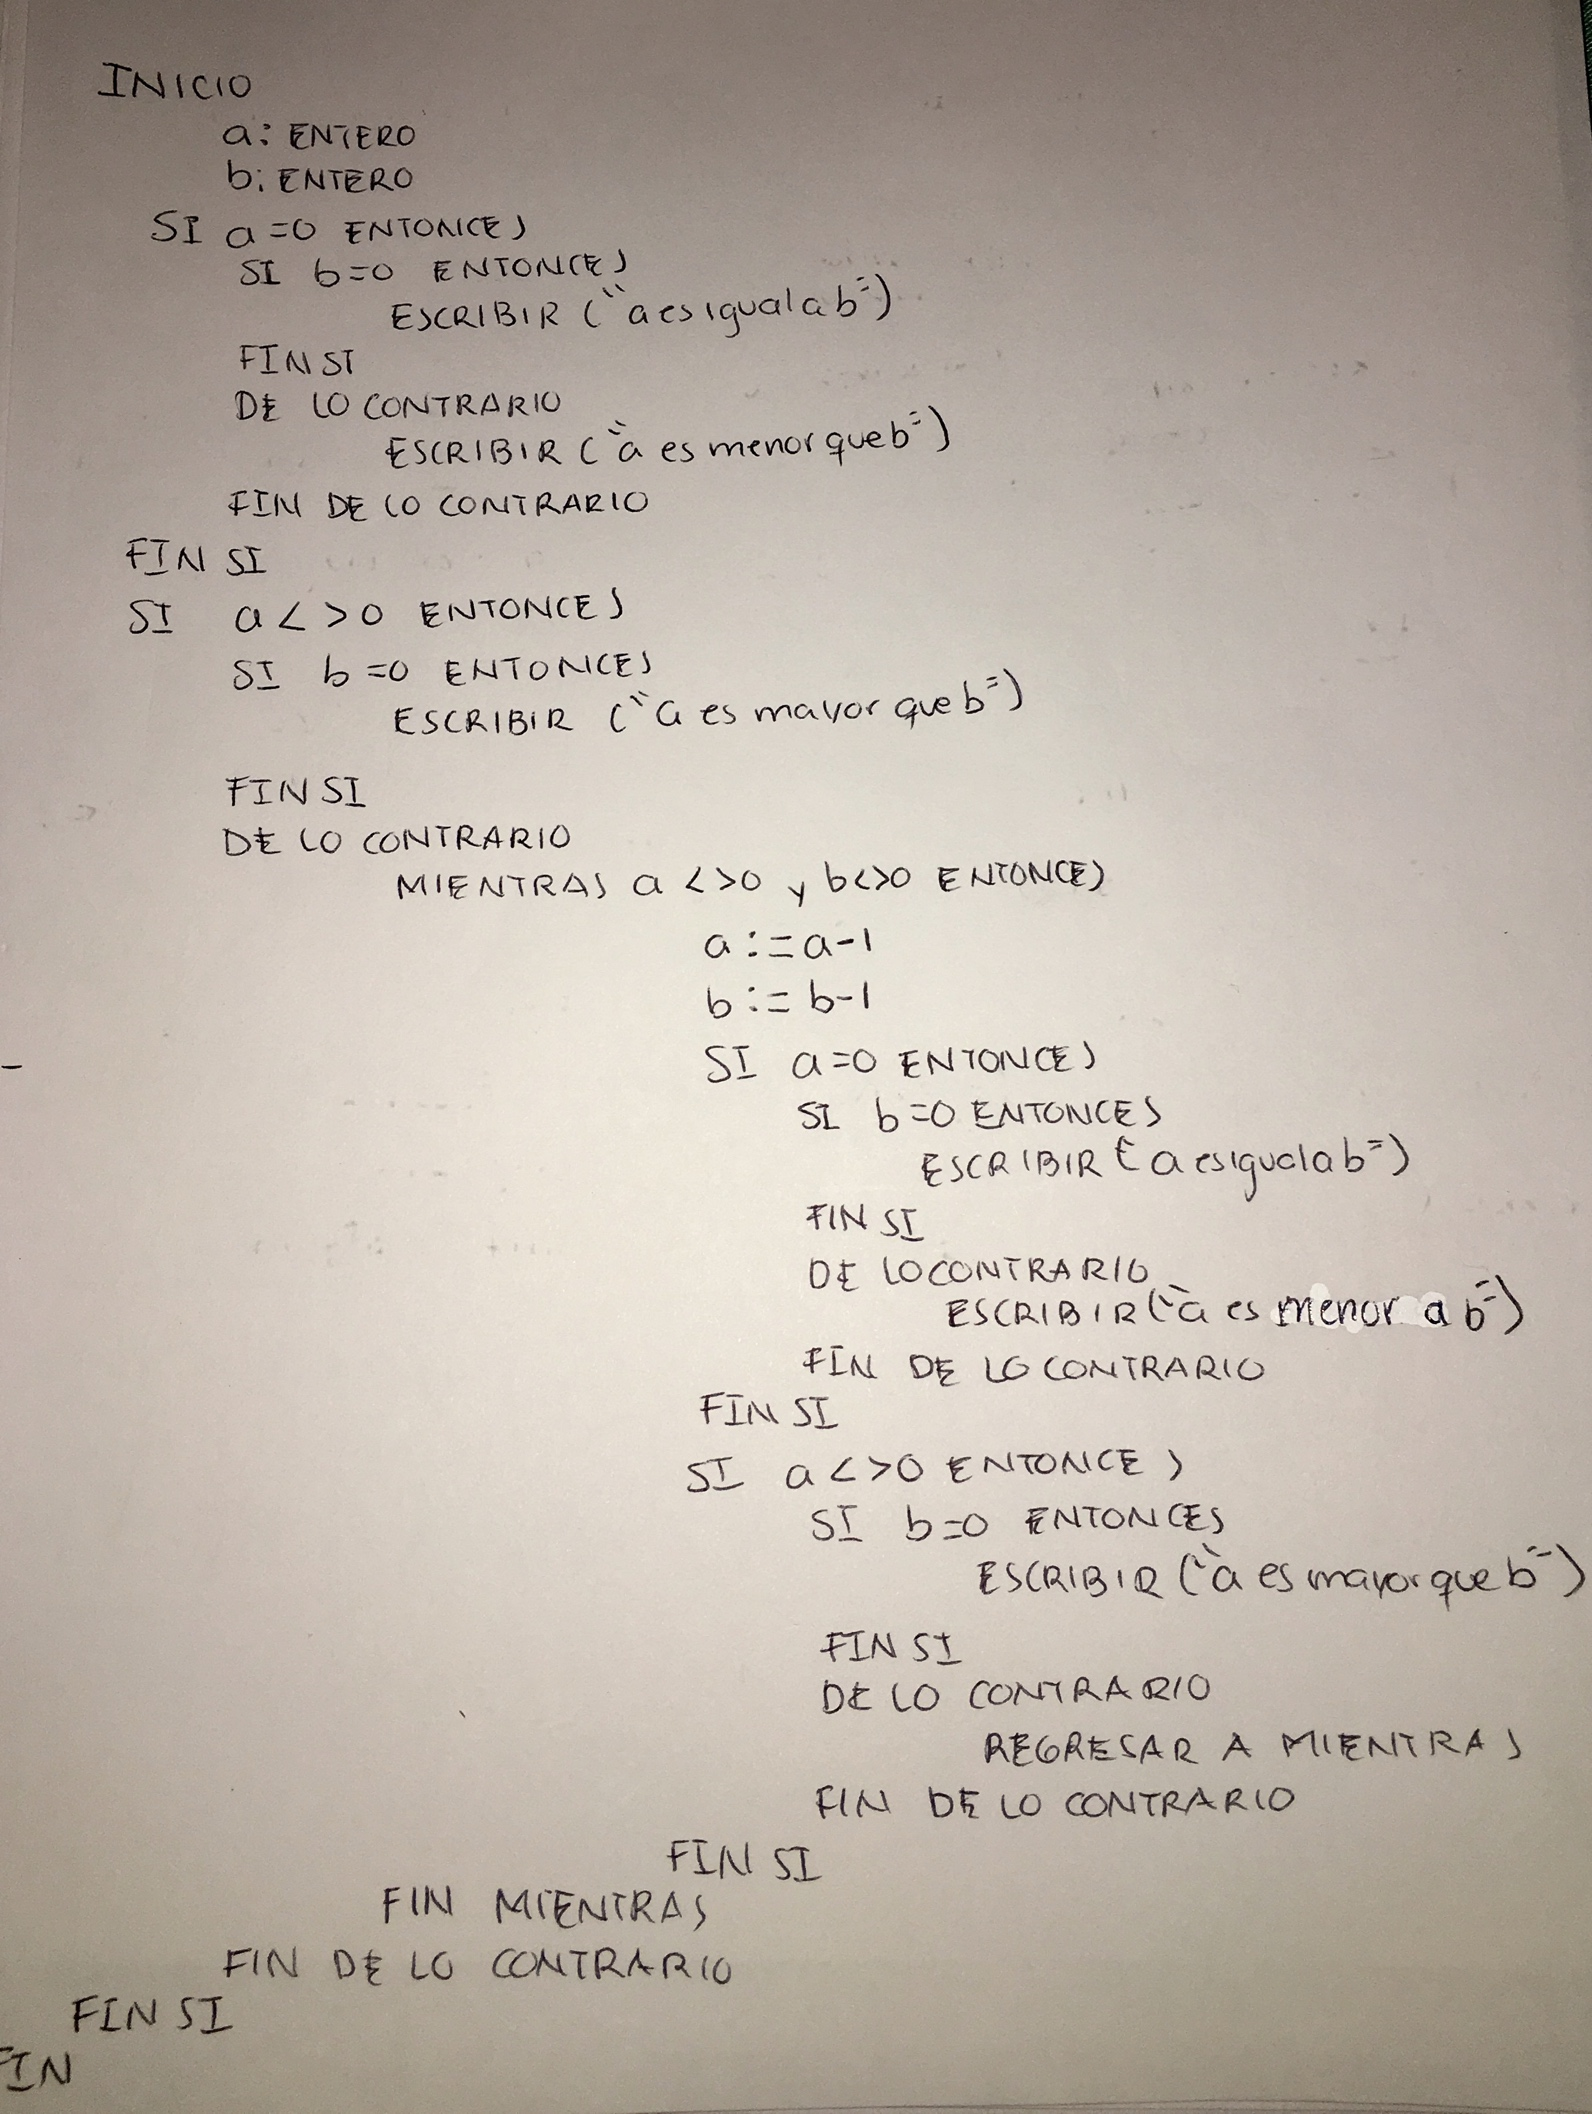 INICIO
a: ENTERO
b: ENTERO
SI a=0 ENTONCES
SI b=0 ENTONCES
ESCRIBIR ("a es igual a b")
FIN SI
DE LO CONTRARIO
ESCRIBIR ("a es menor que b")
FIN DE LO CONTRARIO
FIN SI
SI a<>0 ENTONCES
SI b=0 ENTONCES
ESCRIBIR ("a es mayor que b")
FIN SI
DE LO CONTRARIO
MIENTRAS a <>0 y b<>0 ENTONCES
a:=a-1
b:=b-1
SI a=0 ENTONCES
SI b=0 ENTONCES
ESCRIBIR ("a es igual a b")
FIN SI
DE LO CONTRARIO
ESCRIBIR ("a es menor a b")
FIN DE LO CONTRARIO
FIN SI
SI a<>0 ENTONCES
SI b=0 ENTONCES
ESCRIBIR ("a es mayor que b")
FIN SI
DE LO CONTRARIO
REGRESAR A MIENTRAS
FIN DE LO CONTRARIO
FIN SI
FIN MIENTRAS
FIN DE LO CONTRARIO
FIN SI
FIN